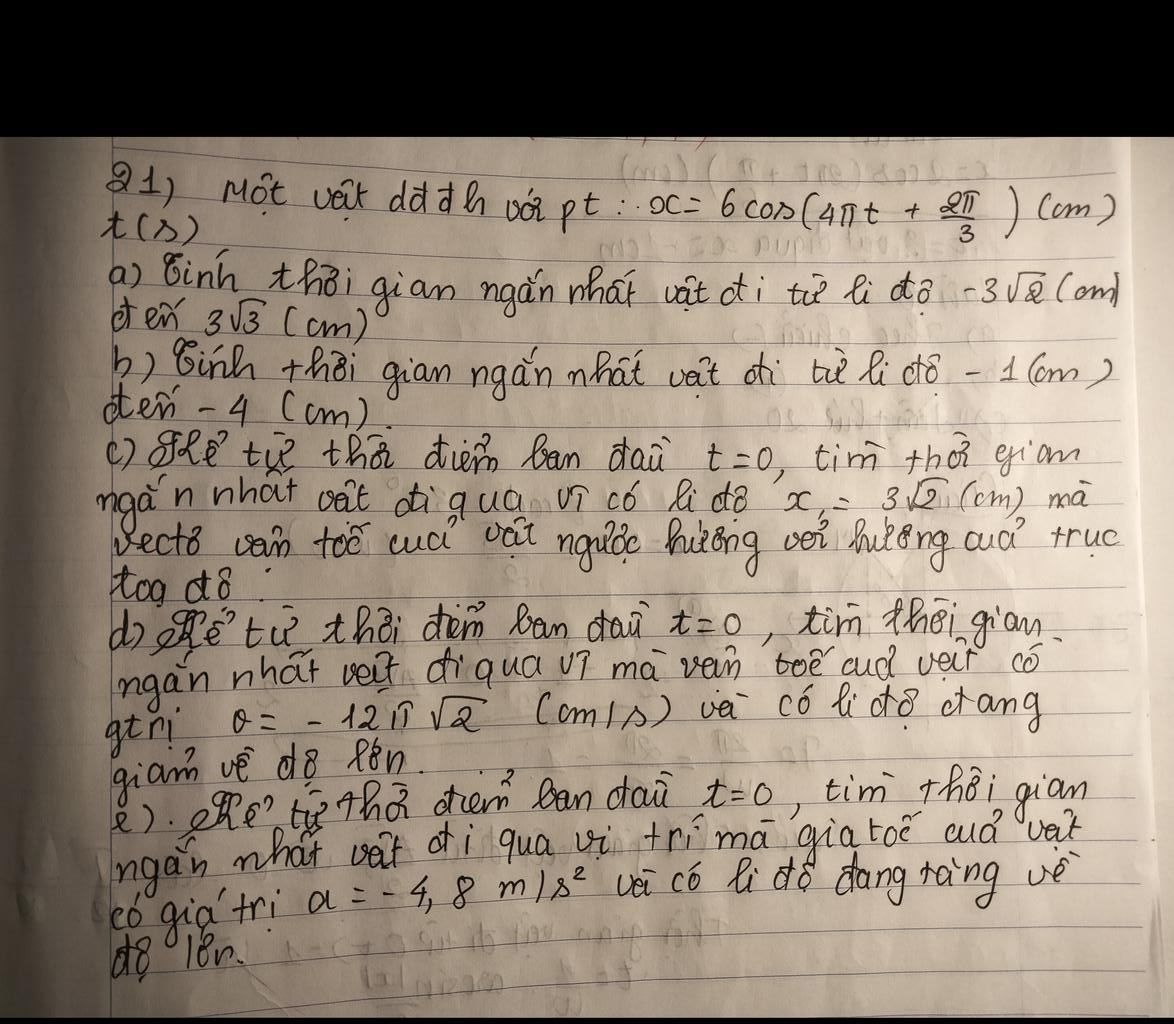 21) Một vật dđđh với pt : x = 6cos(4πt + 2π/3) (cm)
t(s)
a) Tính thời gian ngắn nhất vật đi từ li độ -3√2 (cm)
đến 3√3 (cm)
b) Tính thời gian ngắn nhất vật đi từ li độ - 1 (cm)
đến - 4 (cm).
c) Kể từ thời điểm ban đầu t=0, tìm thời gian
ngắn nhất vật đi qua VT có li độ x₁ = 3√2 (cm) mà
vectơ vận tốc của vật ngược hướng với hướng của trục
toạ độ.
d) Kể từ thời điểm ban đầu t=0, tìm thời gian
ngắn nhất vật đi qua VT mà vận tốc của vật có
gtrị v = - 12π√2 (cm/s) và có li độ đang
giảm về độ lớn.
e). Kể từ thời điểm ban đầu t=0, tìm thời gian
ngắn nhất vật đi qua vị trí mà gia tốc của vật
có giá trị a = - 4,8 m/s² và có li độ đang tăng về
độ lớn.